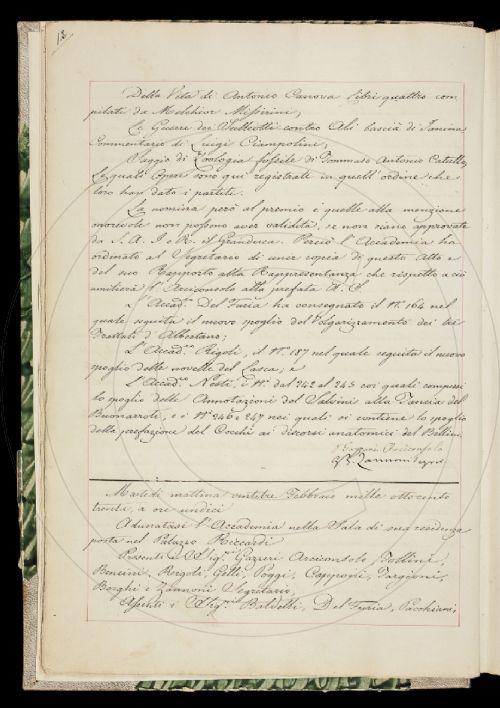 12
Della Vita di Antonio Canova libri quattro com
pilati da Melchior Missirini,
Le Guerre dei Sulliotti contro Alì bascià di Janina
Commentario di Luigi Ciampolini,
Saggio di Zoologia fossile di Tommaso Antonio Catullo,
Le quali Opere sono qui registrate in quell'ordine che
loro han dato i partiti.
La nomina però al premio e quelle alla menzione
onorevole non possono aver validità, se non siano approvate
da S. A. I. e R. il Granduca. Perciò l'Accademia ha
ordinato al Segretario di unir copia di questo Atto e
del suo Rapporto alla Rappresentanza che rispetto a ciò
umilierà l'Arciconsolo alla prefata A. S.
L'Accad.co Del Furia ha consegnato il N.o 164 nel
quale seguita il nuovo spoglio del Volgarizzamento dei tre
Trattati d'Albertano;
L'Accad.co Rigoli, il N.o 187 nel quale seguita il nuovo
spoglio delle novelle del Lasca, e
L'Accad.co Nesti, i N.i dal 242 al 245 coi quali compiesi
lo spoglio delle Annotazioni del Salvini alla Tancia del
Buonarroti, e i N.i 246 e 247 nei quali si contiene lo spoglio
della prefazione del Cocchi ai discorsi anatomici del Bellini.
Gazzeri Arciconsolo
G. B. Zannoni Segr.o
Martedì mattina ventitre Febbraio mille ottocento
trenta, a ore undici
Adunatasi l'Accademia nella Sala di sua residenza
posta nel Palazzo Riccardi
Presenti i Sig.ri Gazzeri Arciconsolo, Follini,
Bencini, Rigoli, Gelli, Poggi, Capponi, Targioni,
Borghi e Zannoni Segretario,
Assenti i Sig.ri Baldelli, Del Furia, Pacchiani,